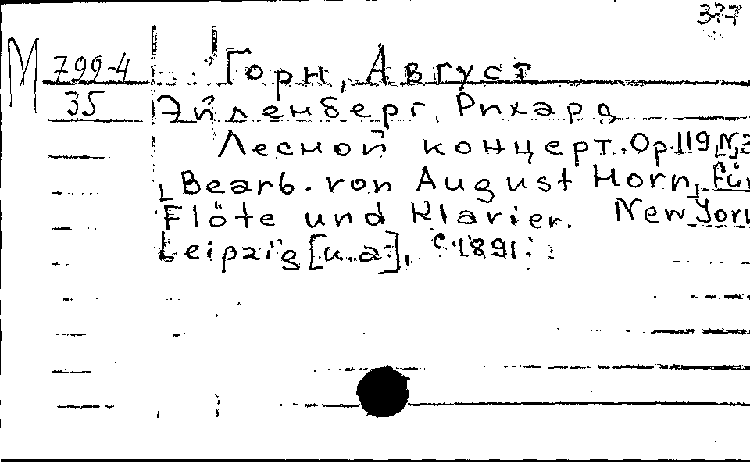 337
М 799-4
35
Горн, Август
Эйленберг, Рихард
Лесной концерт. Op.119, N:3
Bearb. von August Horn, für
Flöte und Klavier. New York
Leipzig [u.a], c 1891.